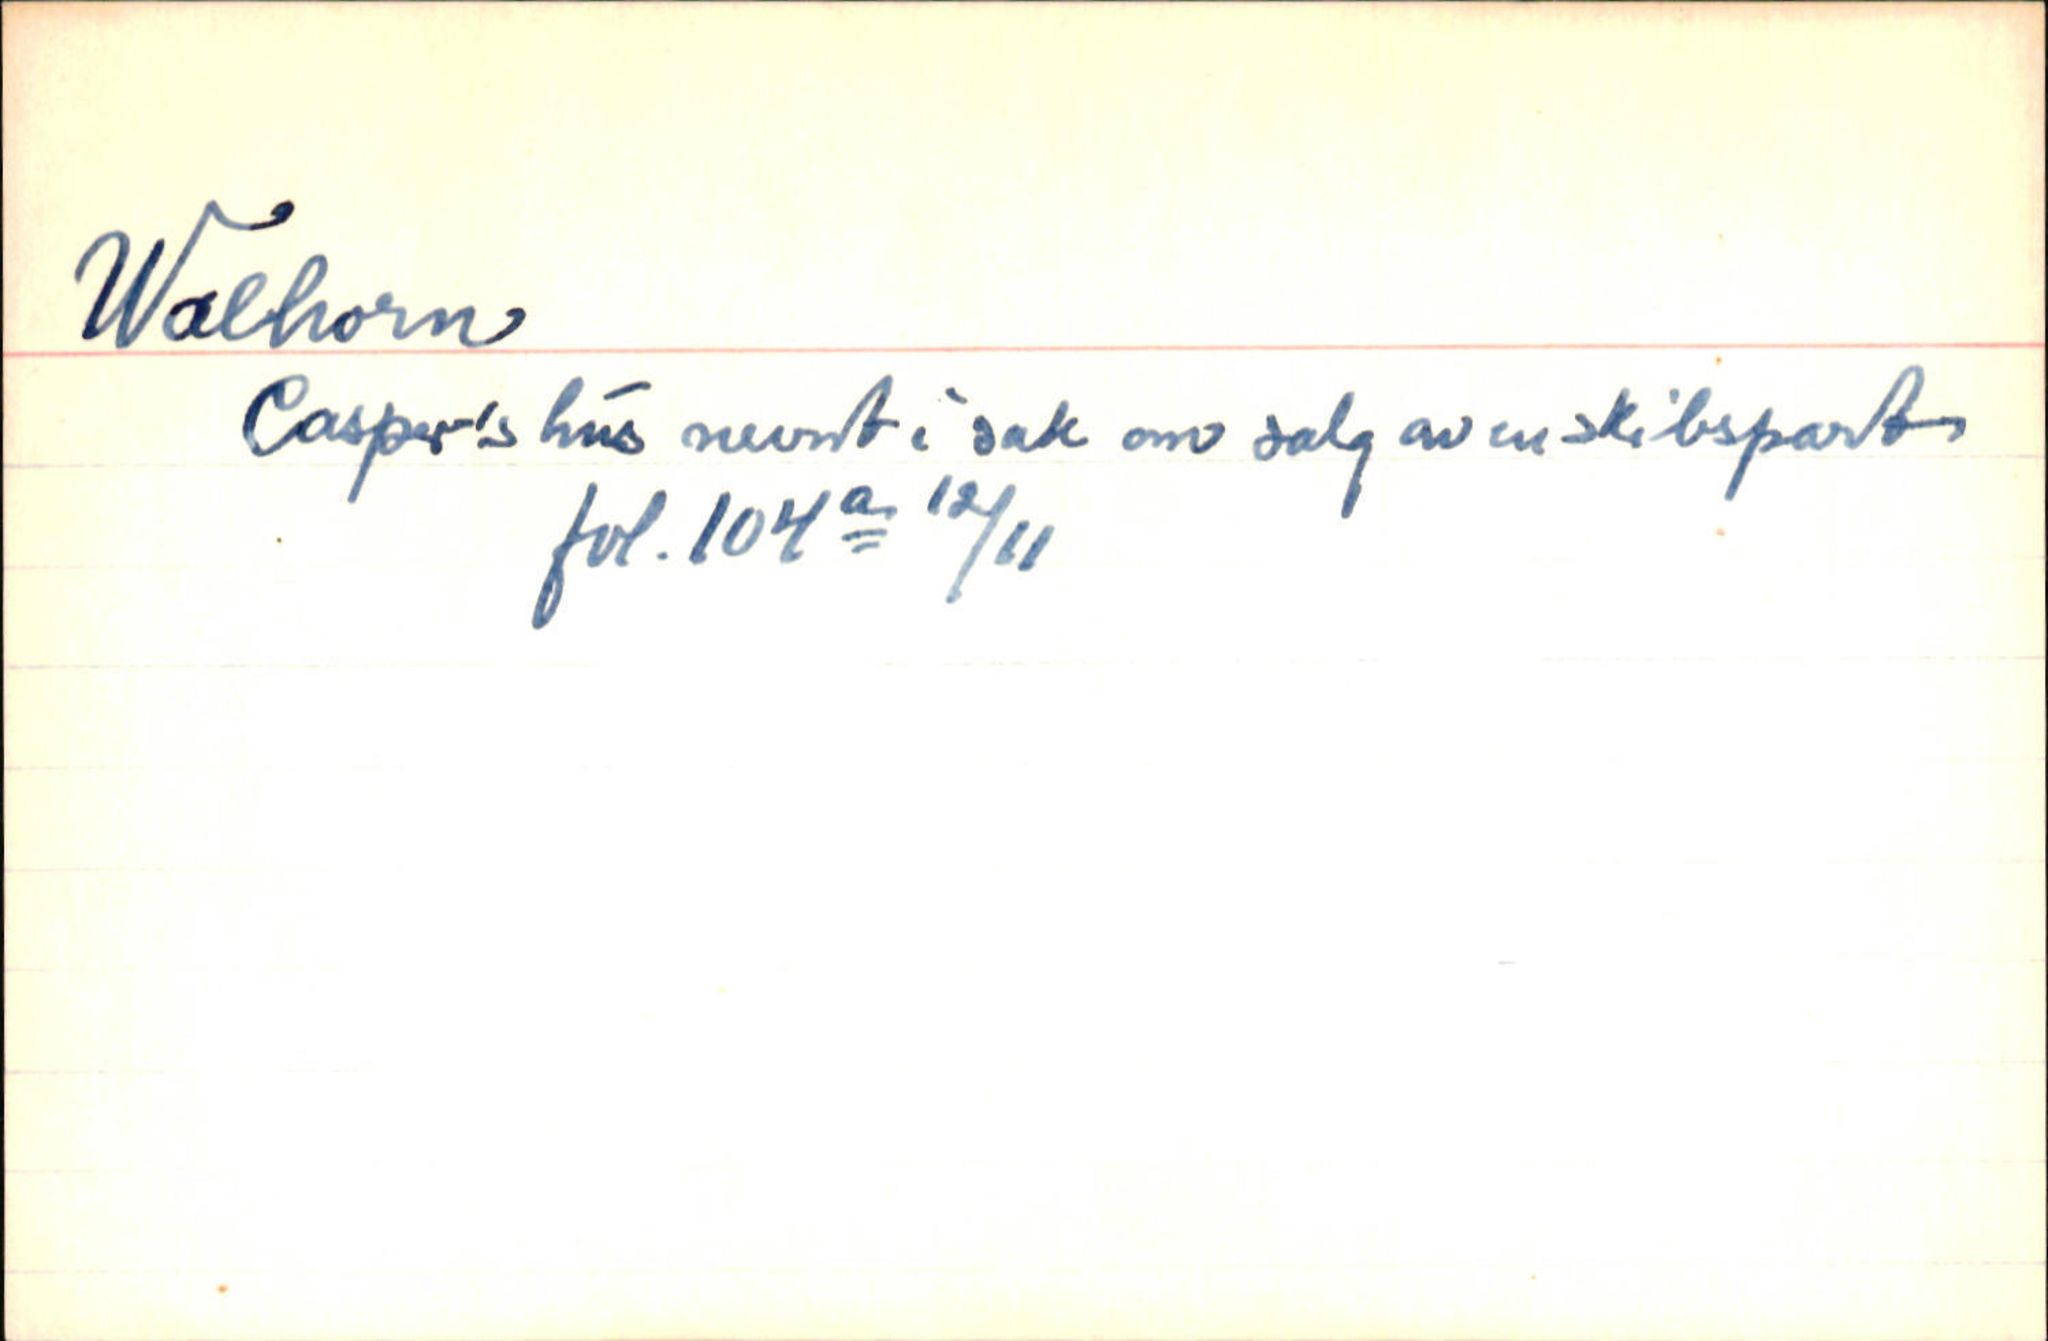 Walhorn
Casper's hus nevnt i sak om salg av en skibspart
fol. 104a 12/11